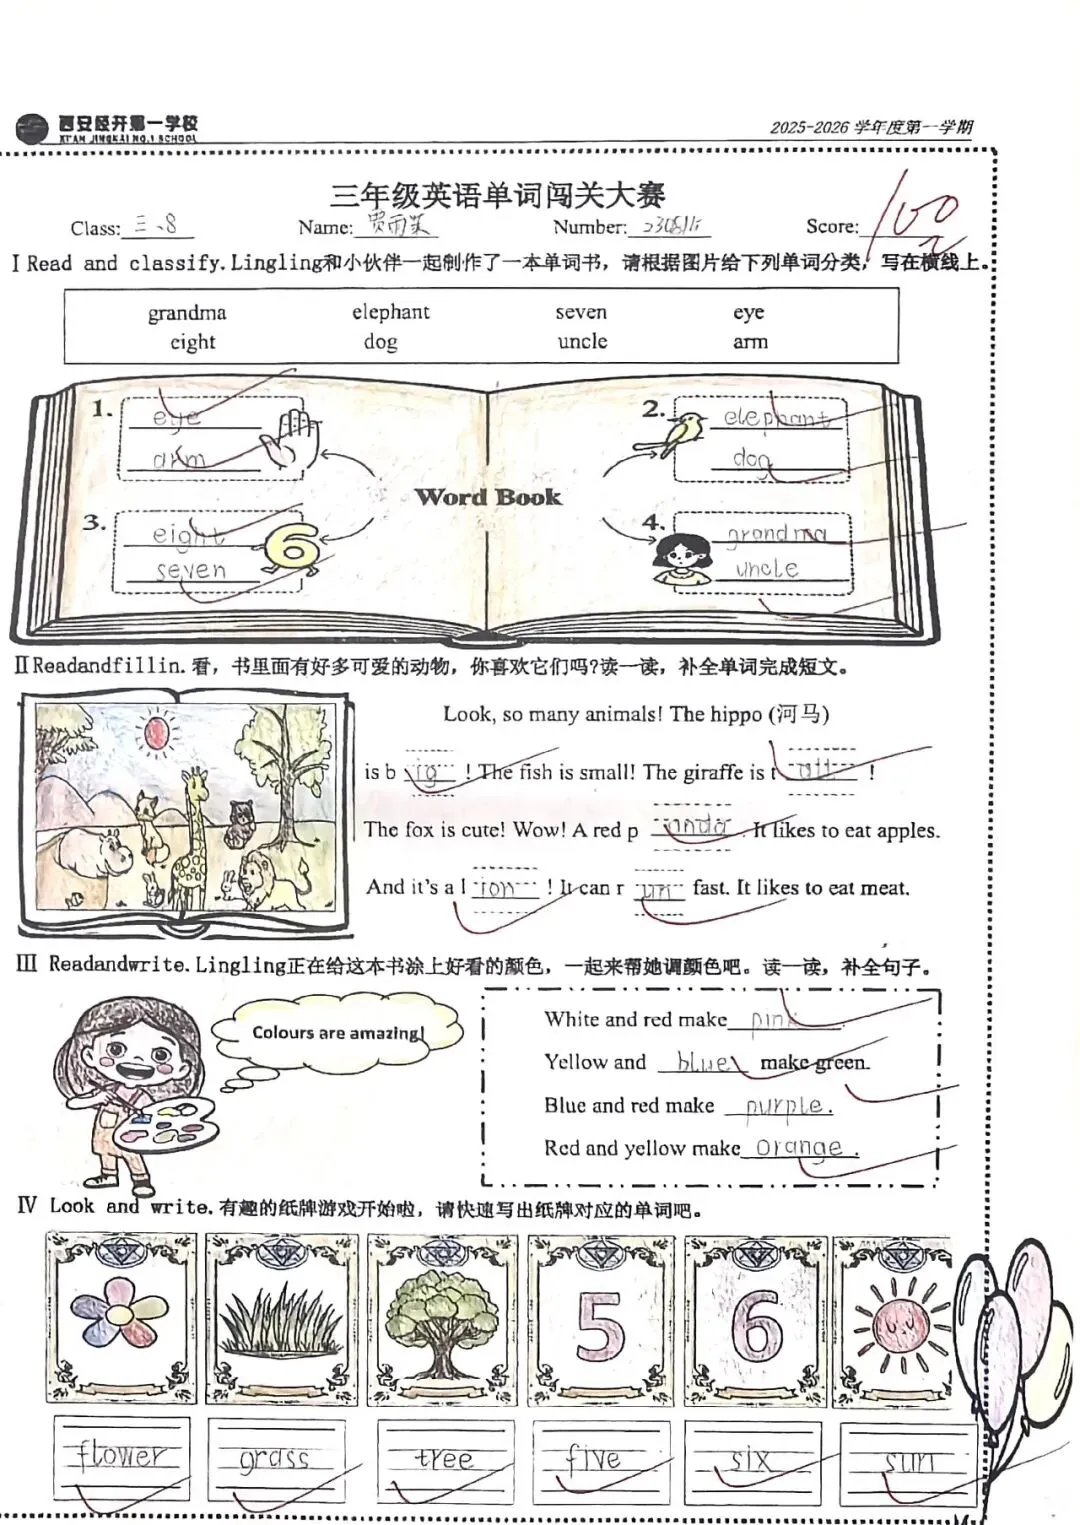 西安经开第一学校
XI'AN JINGKAI NO.1 SCHOOL
2025-2026 学年度第一学期
三年级英语单词闯关大赛
Class: 三、8 Name: 贾雨 Number: Score: 100
I Read and classify.Lingling和小伙伴一起制作了一本单词书，请根据图片给下列单词分类，写在横线上。
grandma elephant seven eye
eight dog uncle arm
1. eye
arm
2. elephant
dog
Word Book
3. eight
seven
6
4. grandma
uncle
II Readandfillin.看，书里面有好多可爱的动物，你喜欢它们吗?读一读，补全单词完成短文。
Look, so many animals! The hippo (河马)
is b ig ! The fish is small! The giraffe is t all !
The fox is cute! Wow! A red p anda . It likes to eat apples.
And it's a l ion ! It can r un fast. It likes to eat meat.
III Readandwrite.Lingling正在给这本书涂上好看的颜色，一起来帮她调颜色吧。读一读，补全句子。
Colours are amazing!
White and red make pink .
Yellow and blue make green.
Blue and red make purple.
Red and yellow make orange .
IV Look and write.有趣的纸牌游戏开始啦，请快速写出纸牌对应的单词吧。
5 6
flower grass tree five six sun